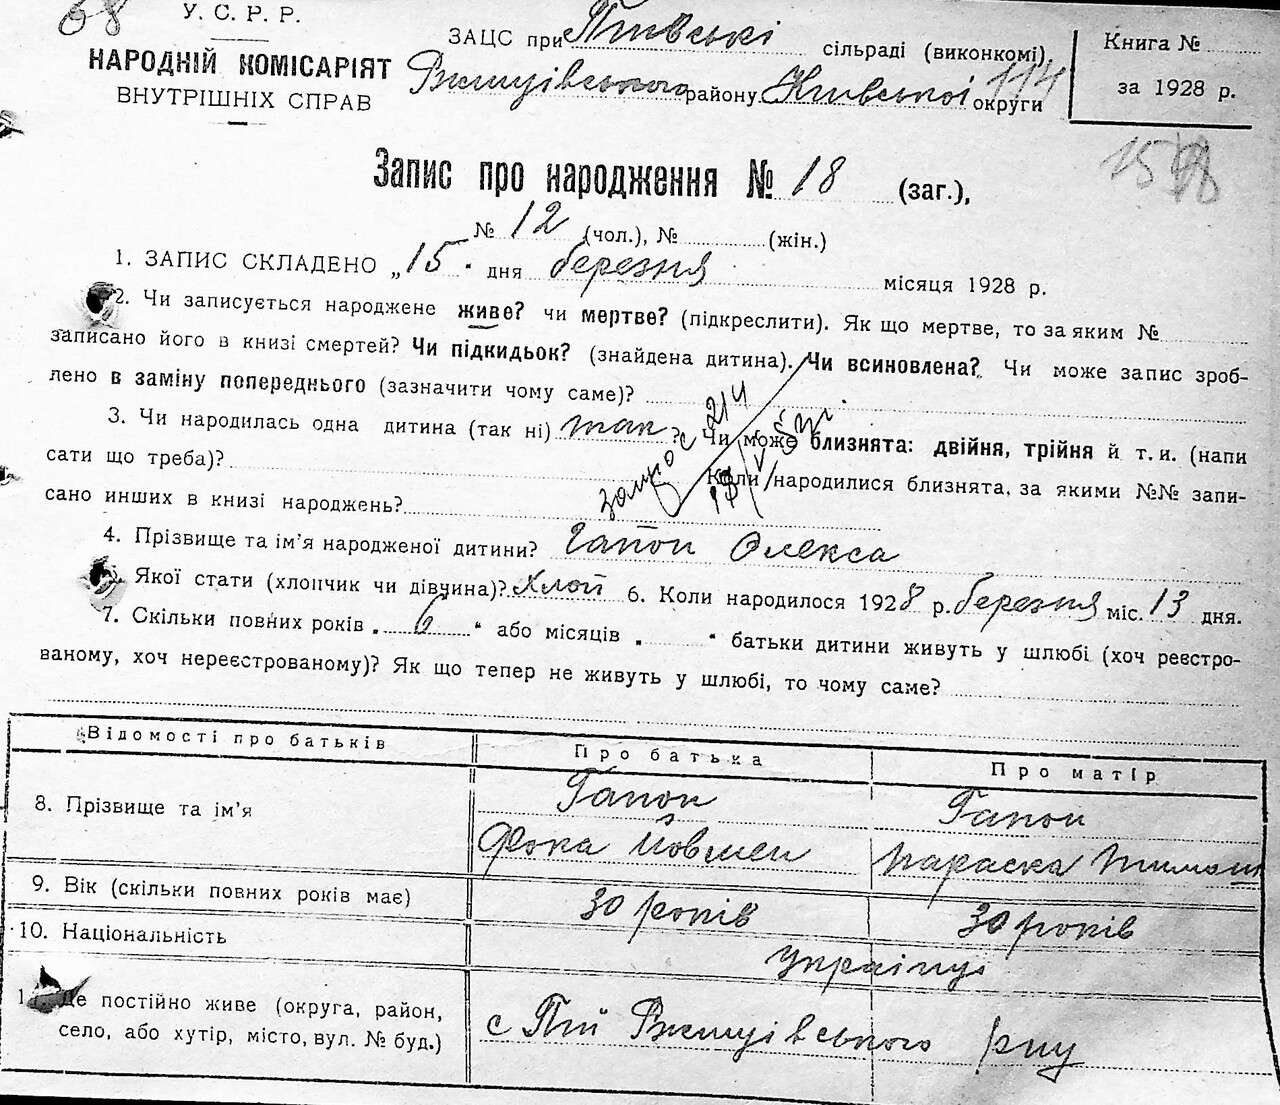 68
У. С. Р. Р.
НАРОДНІЙ КОМІСАРІЯТ
ВНУТРІШНІХ СПРАВ
ЗАЦС при Пиївські сільраді (виконкомі)
Ржищівського району Київської округи 114
Книга №
за 1928 р.
Запис про народження № 18 (заг.),
№ 12 (чол.), № (жін.)
1. ЗАПИС СКЛАДЕНО „15" дня березня місяця 1928 р.
2. Чи записується народжене живе? чи мертве? (підкреслити). Як що мертве, то за яким №
записано його в книзі смертей? Чи підкидьок? (знайдена дитина). Чи всиновлена? Чи може запис зроб-
лено в заміну попереднього (зазначити чому саме)?
3. Чи народилась одна дитина (так ні) так? Чи може близнята: двійня, трійня й т. и. (напи
сати що треба)? Коли народилися близнята, за якими №№ запи-
сано инших в книзі народжень?
4. Прізвище та ім'я народженої дитини? Гапон Олекса
Якої стати (хлопчик чи дівчина)? Хлоп 6. Коли народилося 1928 р. березня міс. 13 дня.
7. Скільки повних років „ 6 " або місяців „ " батьки дитини живуть у шлюбі (хоч реєстро-
ваному, хоч нереєстрованому)? Як що тепер не живуть у шлюбі, то чому саме?
Відомості про батьків Про батька Про матір
8. Прізвище та ім'я Гапон Гапон
Фока Йовмен Параска Тимош
9. Вік (скільки повних років має) 30 років 30 років
10. Національність україну
Де постійно живе (округа, район,
село, або хутір, місто, вул. № буд.) с Пії Ржищівського р-ну